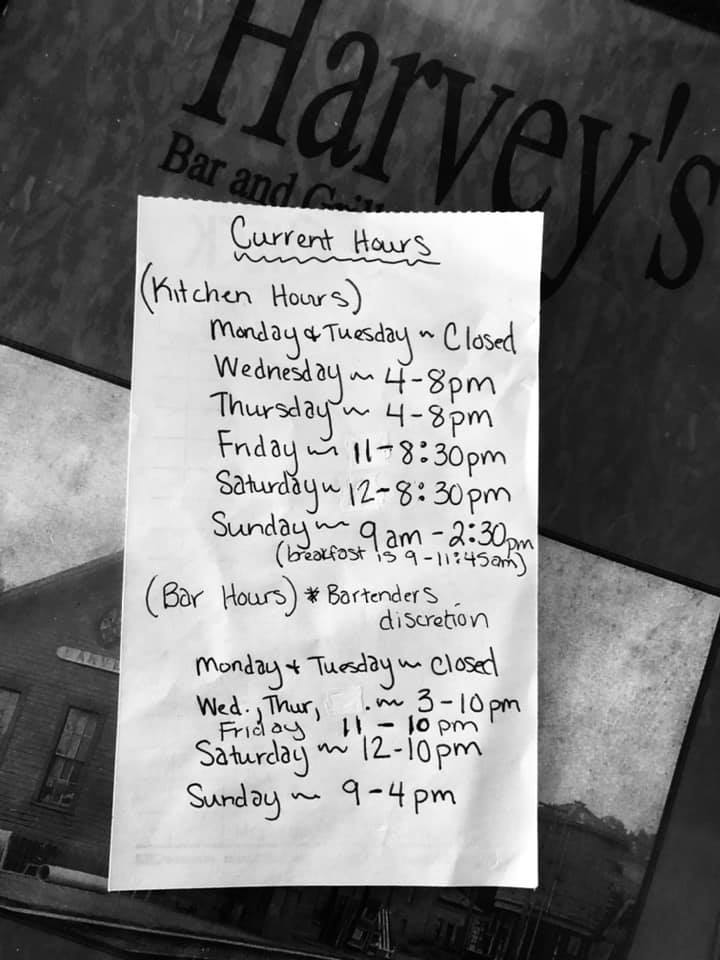 Harvey's
Bar and Grill
Current Hours
(Kitchen Hours)
Monday & Tuesday ~ Closed
Wednesday ~ 4-8pm
Thursday ~ 4-8pm
Friday ~ 11-8:30pm
Saturday ~ 12-8:30pm
Sunday ~ 9am-2:30pm
(breakfast is 9-11:45am)
(Bar Hours) * Bartenders
discretion
Monday & Tuesday ~ Closed
Wed., Thur, . ~ 3-10pm
Friday 11-10pm
Saturday ~ 12-10pm
Sunday ~ 9-4pm